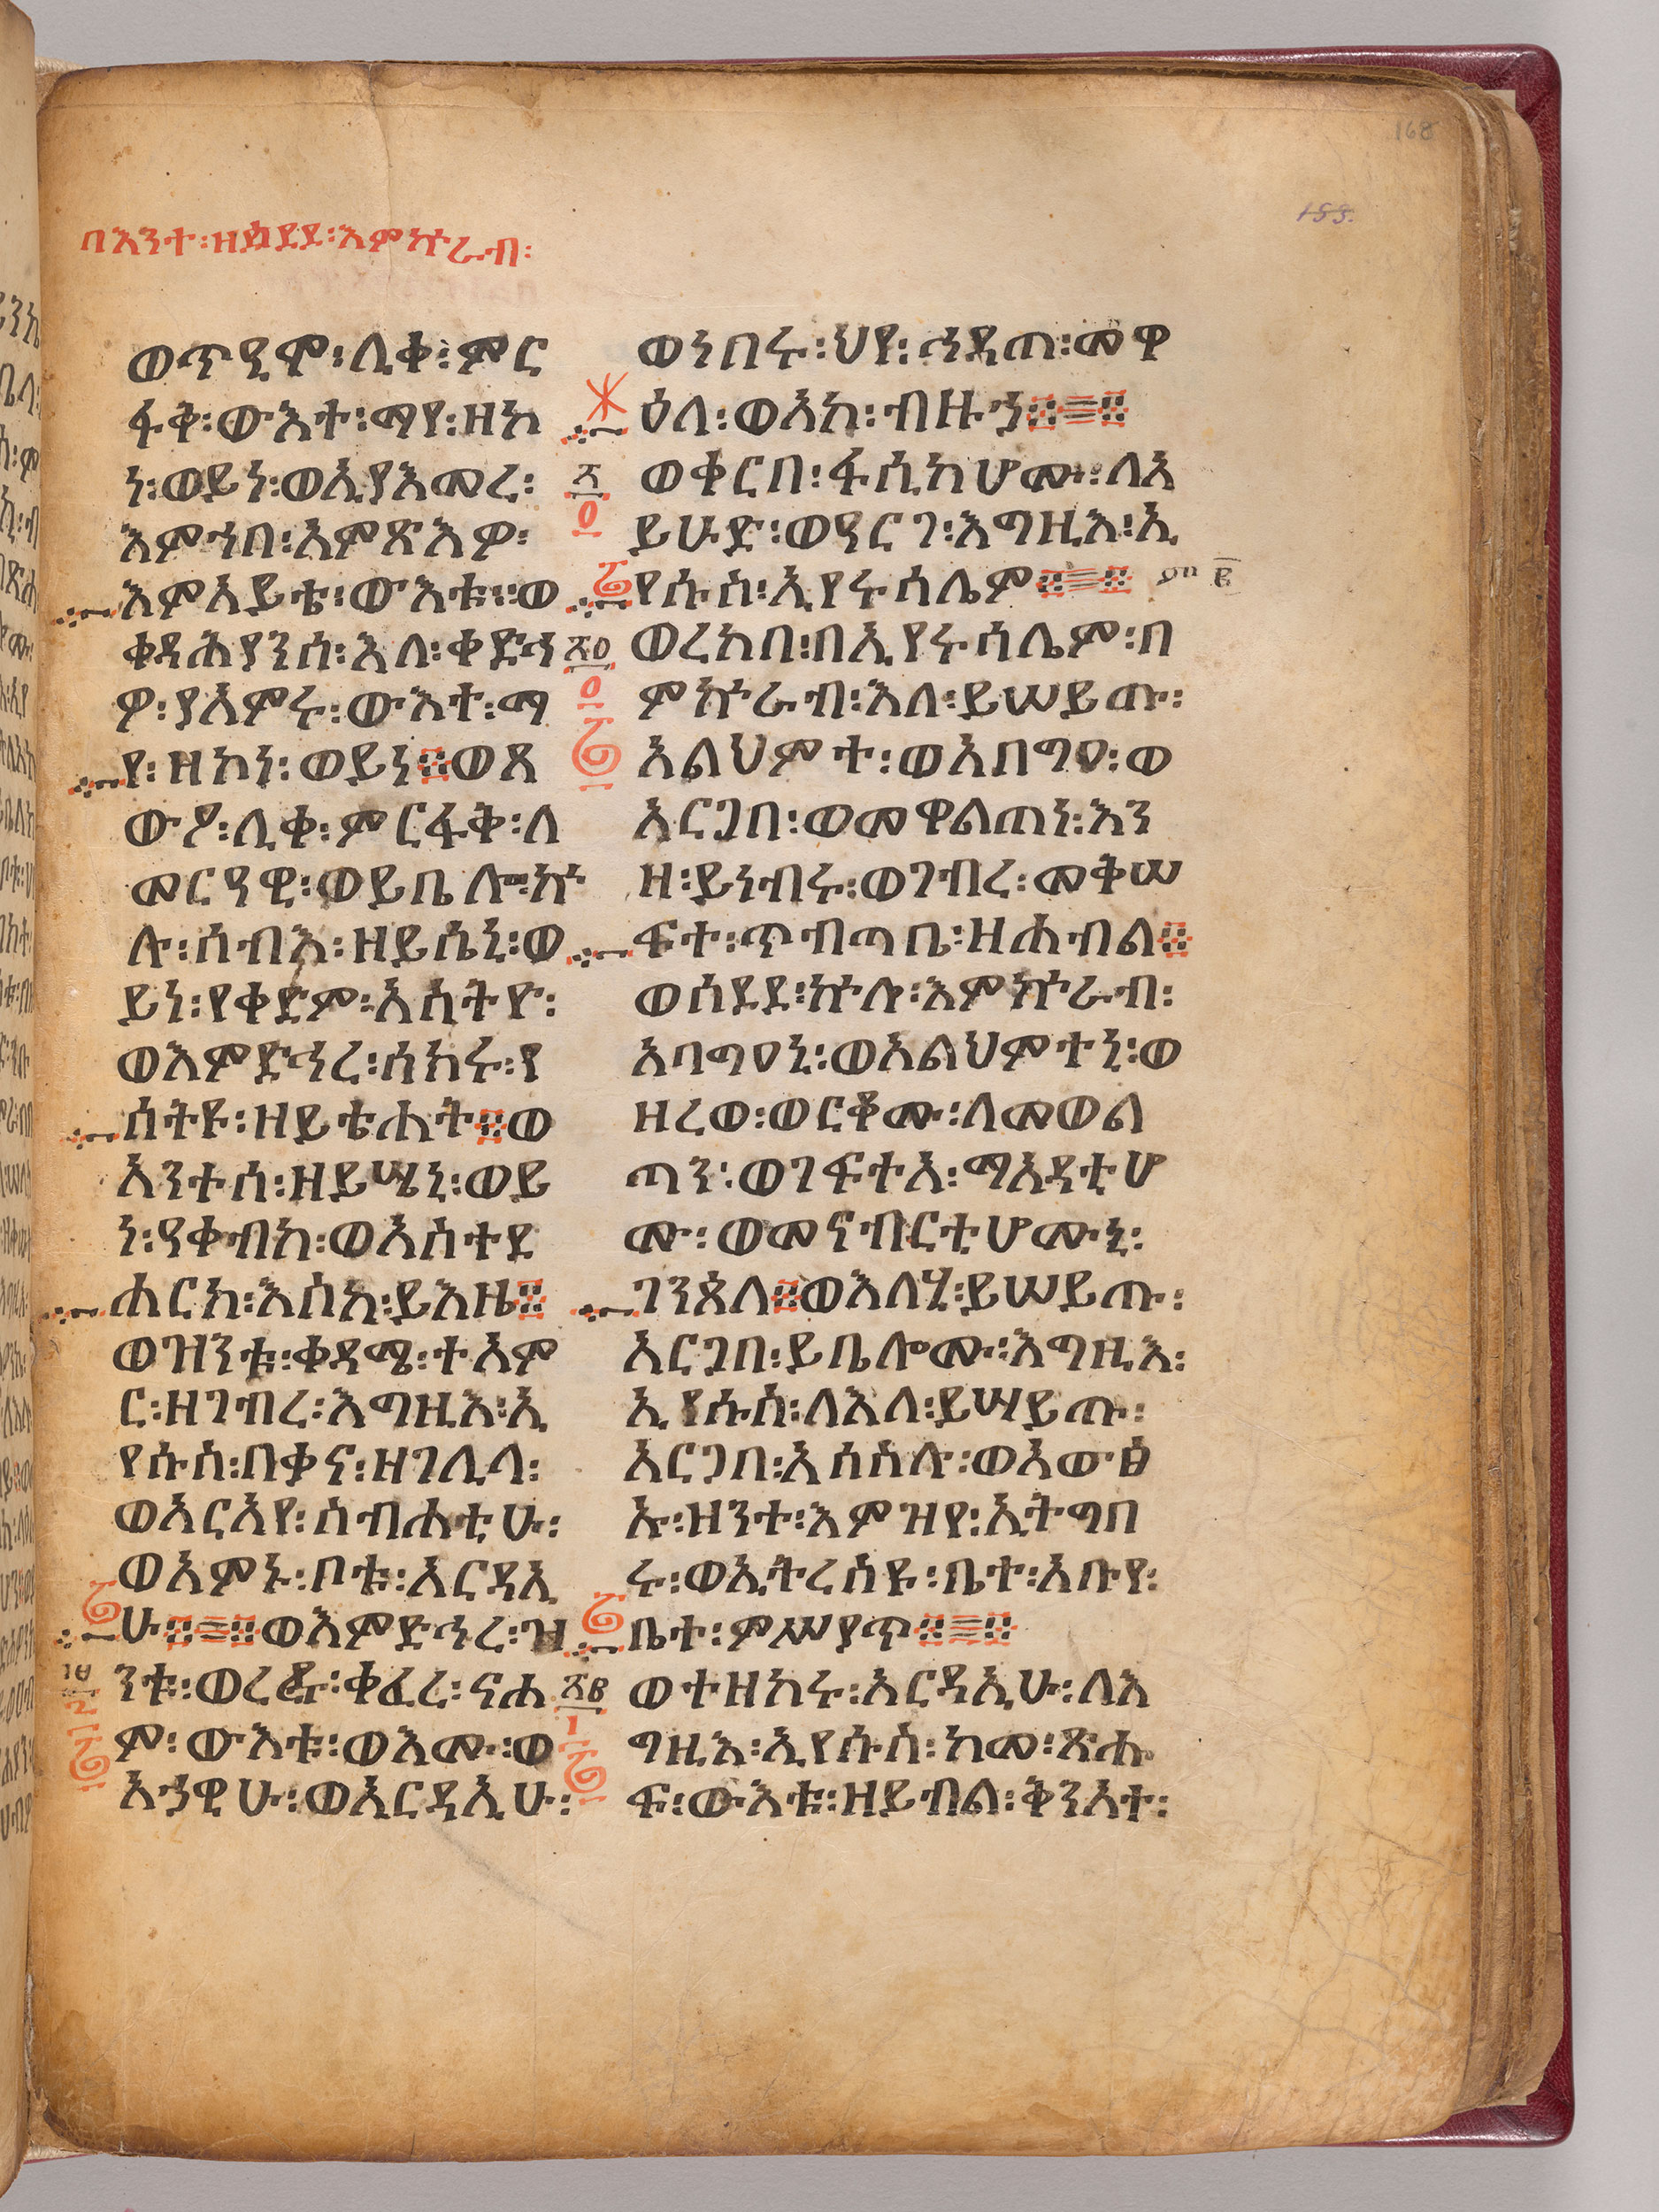 168
155.
በእንተ፡ዘይሰደደ፡እምኵራብ፡
ወጥዒሞ፡ሊቀ፡ምር
ፋቅ፡ውእተ፡ማየ፡ዘኮ
ነ፡ወይነ፡ወኢያእመረ፡
እምኀበ፡አምጽእዎ፡
እምአይቴ፡ውእቱ፡፡ወ
ቀዳሕያንሰ፡እለ፡ቀድኅ
ዎ፡ያአምሩ፡ውእተ፡ማ
የ፡ዘኮነ፡ወይነ፨ወጸ
ውዖ፡ሊቀ፡ምርፋቅ፡ለ
መርዓዊ፡ወይቤሎ፡ኵ
ሉ፡ሰብእ፡ዘይሴኒ፡ወ
ይነ፡የቀድም፡አስትዮ፡
ወእምድኅረ፡ሰክሩ፡የ
ሰትዩ፡ዘይቴሐት፨ወ
አንተሰ፡ዘይሤኒ፡ወይ
ነ፡ዓቀብከ፡ወአስተደ
ሐርከ፡እስከ፡ይእዜ፨
ወዝንቱ፡ቀዳሜ፡ተአም
ር፡ዘገብረ፡እግዚእ፡ኢ
የሱስ፡በቃና፡ዘገሊላ፡
ወአርአየ፡ስብሐቲሁ፡
ወአምኑ፡ቦቱ፡አርዳኢ
ሁ፨፨ወእምድኅረ፡ዝ
፲፱
ንቱ፡ወረደ፡ቀፈረ፡ናሐ
ም፡ውእቱ፡ወእሙ፡ወ
አኃዊሁ፡ወአርዳኢሁ፡
ወነበሩ፡ህየ፡ኅዳጠ፡መዋ
ዕለ፡ወአኮ፡ብዙኃ፨፨
ወቀርበ፡ፋሲካሆሙ፡ለአ
ይሁድ፡ወዓርገ፡እግዚእ፡ኢ
የሱስ፡ኢየሩሳሌም፨፨
ወረከበ፡በኢየሩሳሌም፡በ
ምኵራብ፡እለ፡ይሠይጡ፡
አልህምተ፡ወአበግዐ፡ወ
አርጋበ፡ወመዋልጠነ፡እን
ዘ፡ይነብሩ፡ወገብረ፡መቅሠ
ፍተ፡ጥብጣቤ፡ዘሐብል፨
ወሰደደ፡ኵሎ፡እምኵራብ፡
አባግዐኒ፡ወአልህምተኒ፡ወ
ዘረወ፡ወርቆሙ፡ለመወል
ጣን፡ወገፍተአ፡ማእዳቲሆ
ሙ፡ወመናብርቲሆሙኒ፡
ገንጰለ፨ወእለሂ፡ይሠይጡ፡
አርጋበ፡ይቤሎሙ፡እግዚእ፡
ኢየሱስ፡ለእለ፡ይሣይጡ፡
አርጋበ፡አሰስሉ፡ወአውፅ
ኡ፡ዘንተ፡እምዝየ፡ኢትግበ
ሩ፡ወኢትረስዩ፡ቤተ፡አቡየ፡
ቤተ፡ምሥያጥ፨፨
ወተዘከሩ፡አርዳኢሁ፡ለእ
ግዚእ፡ኢየሱስ፡ከመ፡ጽሑ
ፍ፡ውእቱ፡ዘይብል፡ቅንአተ፡